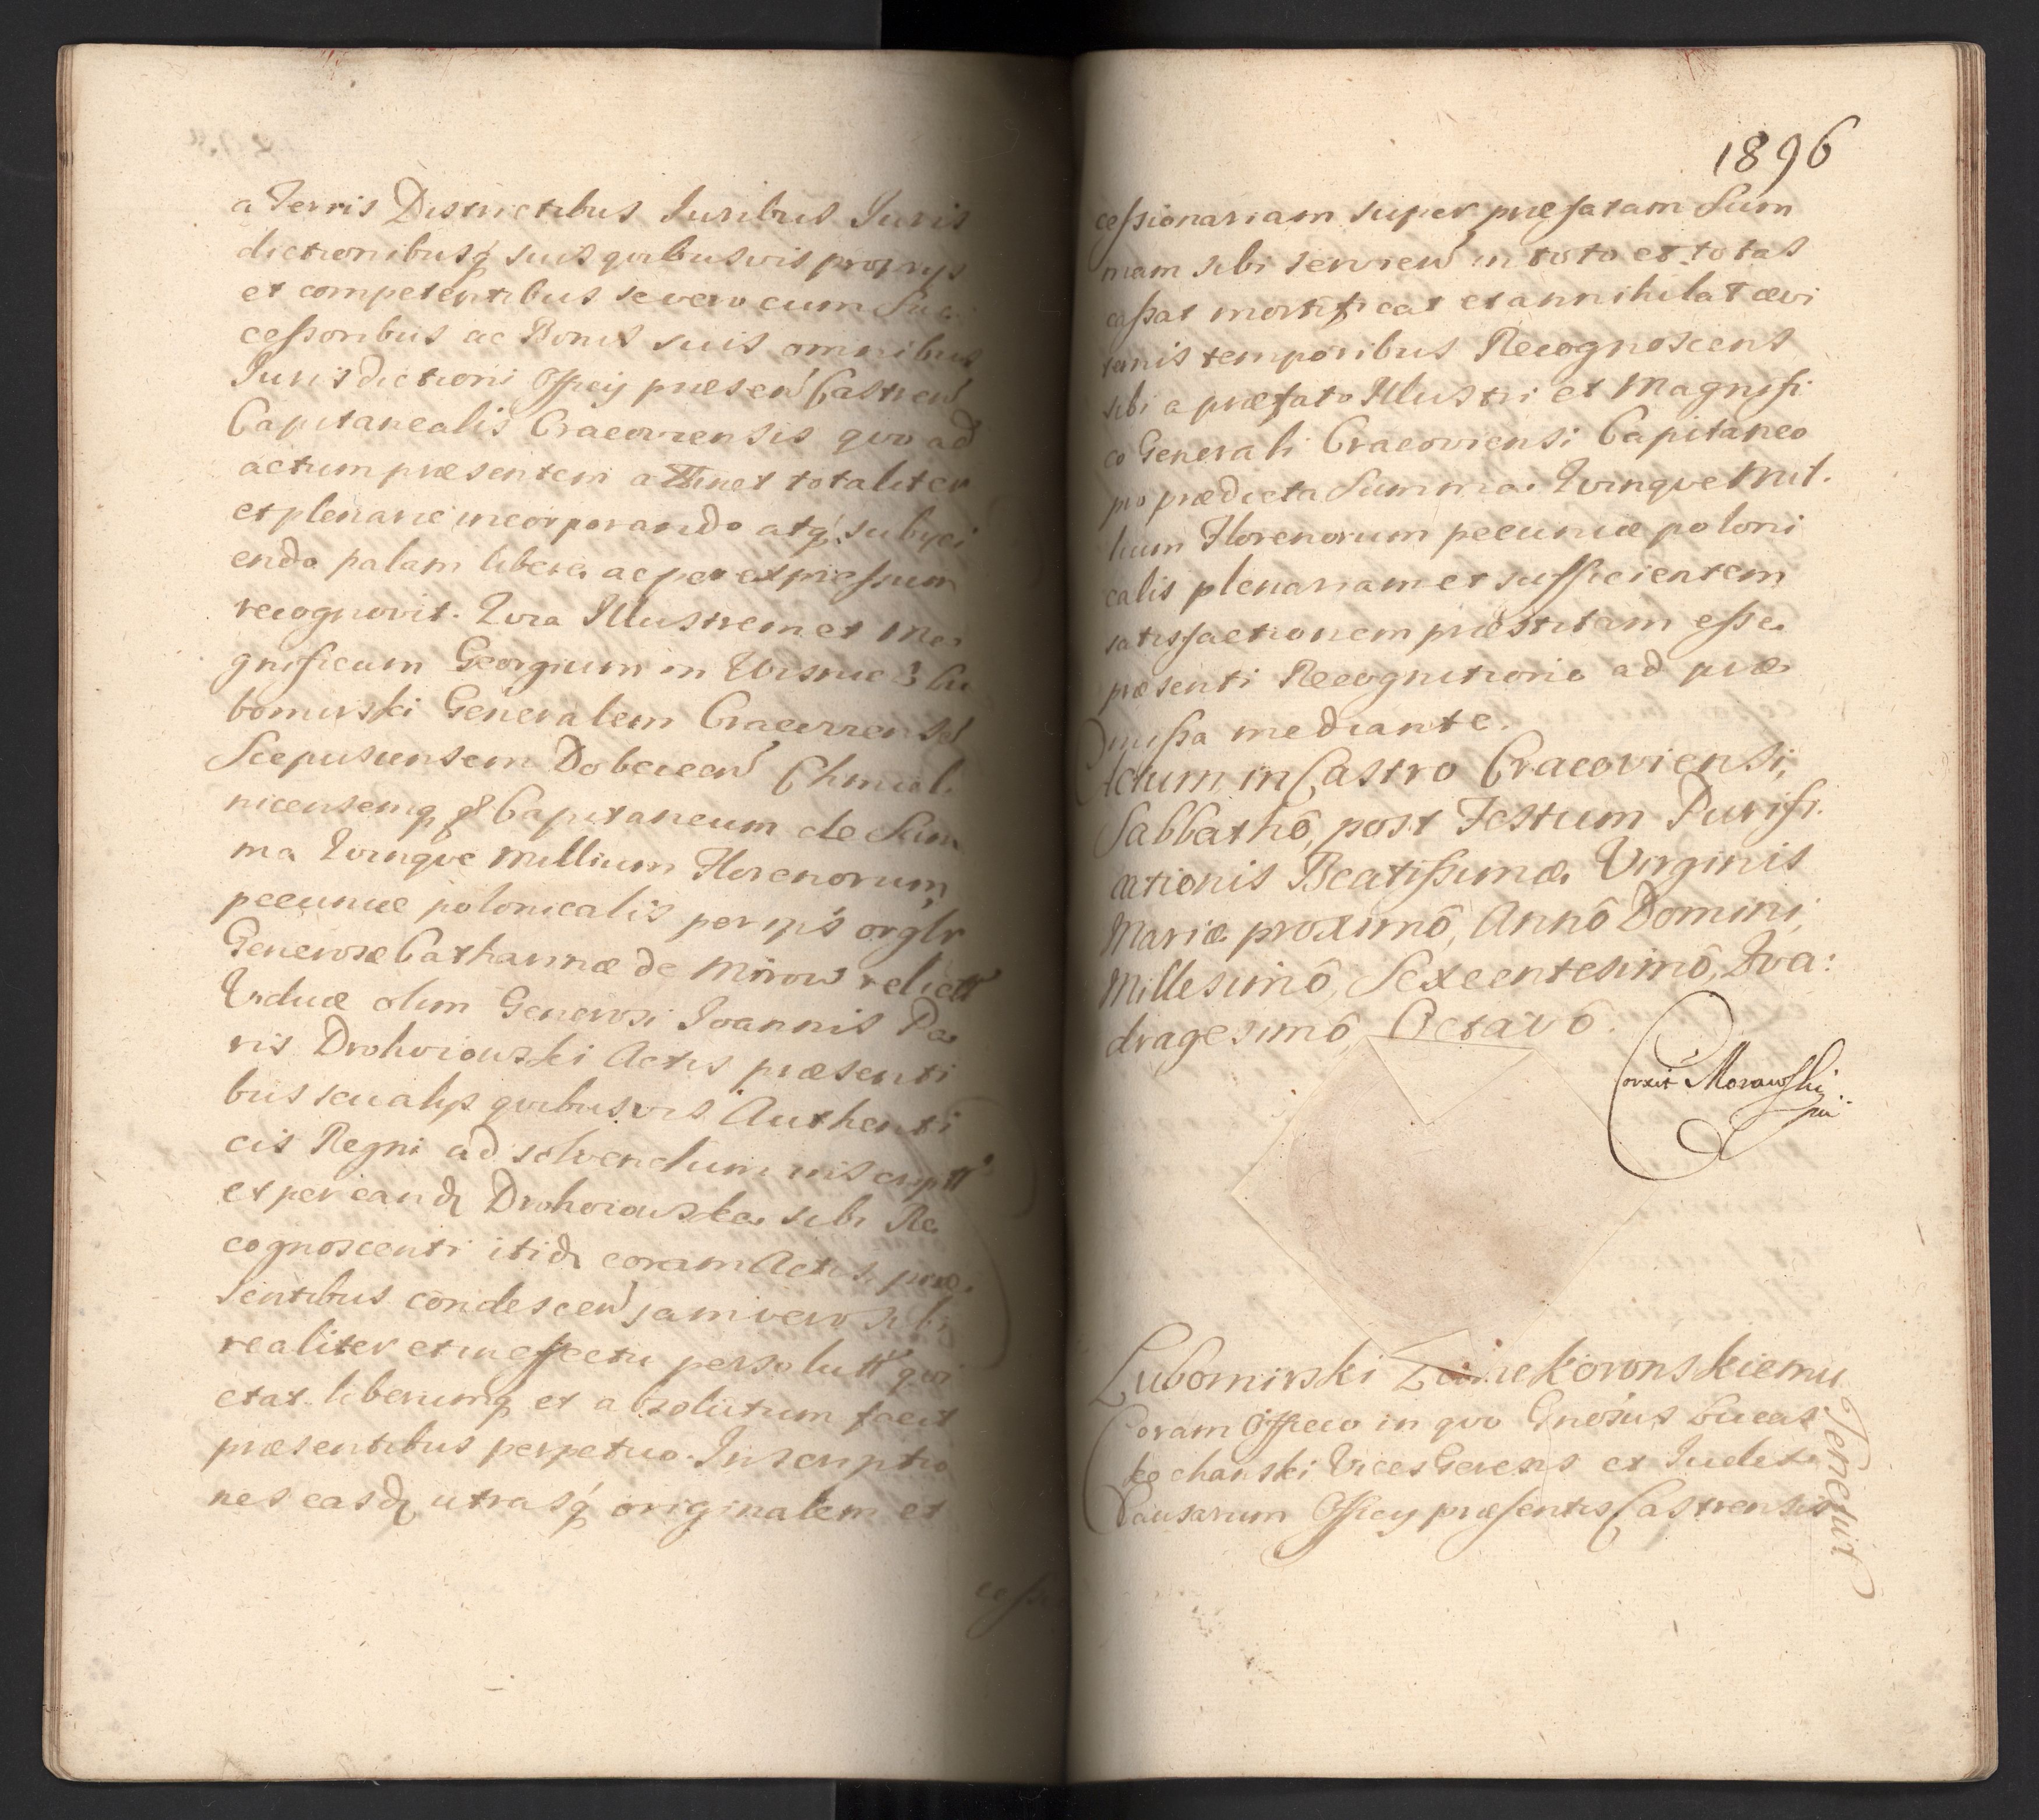 a Terris Districtibus Iuribus Iuris
dictionibusq́ suis quibusvis proprys
et competentibus se vero cum Suc
cessoribus ac Bonis suis omnibus
Iurisdictioni Officy præsen Castren
Capitanealis Cracoviensis quo ad
actum præsentem attinet totaliter
et plenarie incorporando atq́ subyci
endo palam libere ac per expressum
recognovit. Quia Illustrem et Ma
gnificum Georgium in Wisnicz Lu
bomirski Generalem Cracovien
Scepusiensem Dobcicen Chmiel
nicensemq Capitaneum de Sum
ma Quinque Millium Florenorum
pecuniæ polonicalis per ips orglr
Generosæ Catharinæ de Mirow relictt
Viduæ olim Generosi Ioannis Pa
ris Drohoiowski Actis præsenti
bus seu alys quibusvis Authenti
cis Regni ad solvendum inscriptt
et per eand Drohoiowska sibi Re
cognoscenti itid coram Actis præ
sentibus condescen jam vero sibi
realiter et in effectu persolutt qui
etat liberumq et absolutum facit
præsentibus perpetuo. Inscriptio
nes easd utrasq́ originalem et
cessi
1896
cessionariam super præfatam Sum
mam sibi servien in toto et totas
cassat mortificat et annihilat ævi
ternis temporibus Recognoscens
sibi a præfato Illustri et Magnifi
co Generali Cracoviensi Capitaneo
pro prædicta Summa Quinque Mil.
lium Florenorum pecuniæ poloni
calis plenariam et sufficientem
satisfactionem præstitam esse
præsenti Recognitione ad præ
missa mediante.
Actum in Castro Cracoviensi,
Sabbathô, post Festum Purifi.
cationis Beatissimæ Virginis
Mariæ proximô, Annô Domini,
Millesimô, Sexcentesimô, Qua:
dragesimô Octavô.
Corxit Morawski
Lubomirski koronskiemu
Coram Officio in quo Gnosus Lucas
kochanski Vices Gerens et Iudex
Causarum Officy præsentis Castrensis
Tenetuit